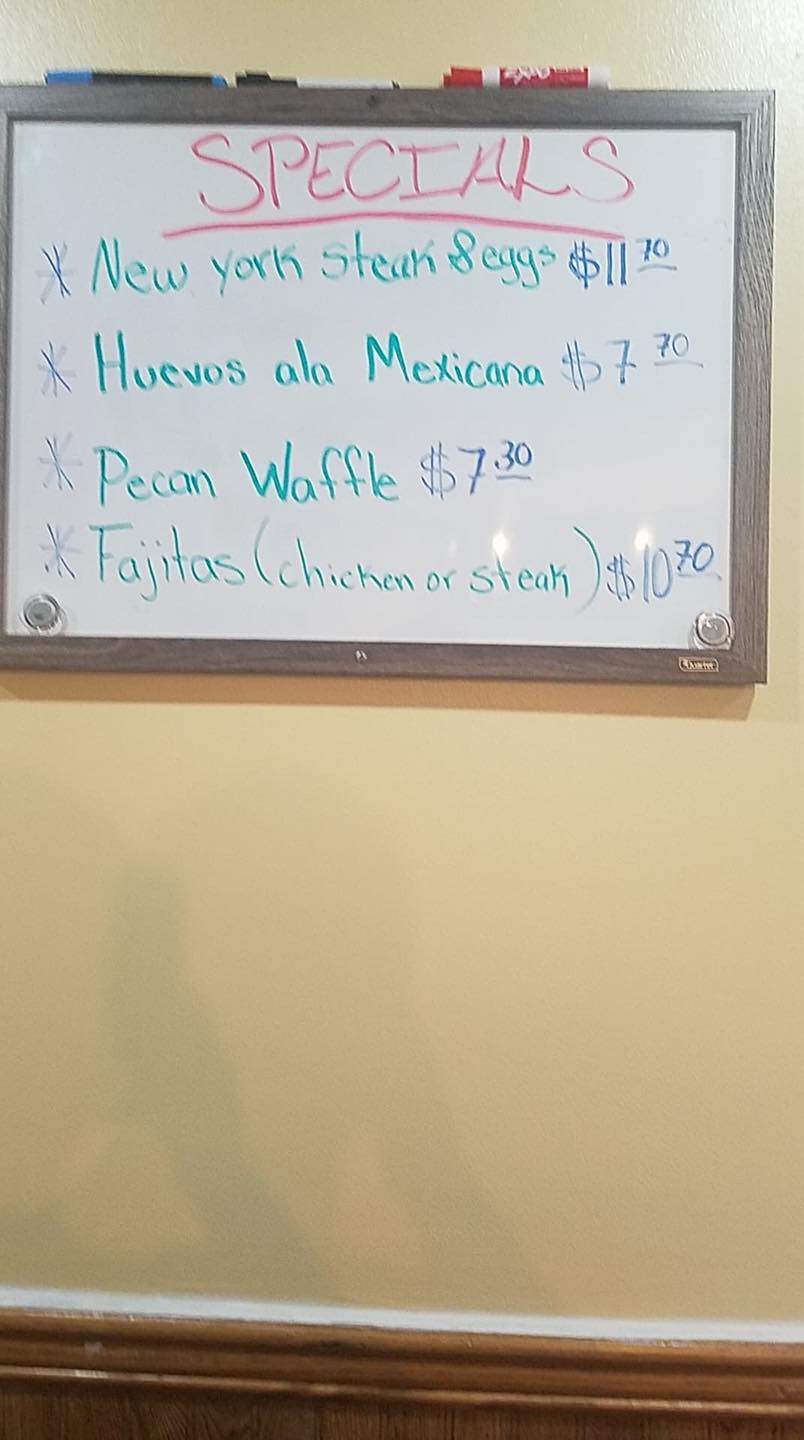 EXPO
SPECIALS
* New york steak & eggs $11 70
* Huevos ala Mexicana $7 70
* Pecan Waffle $7 30
* Fajitas (chicken or steak) $10 70
Quartet